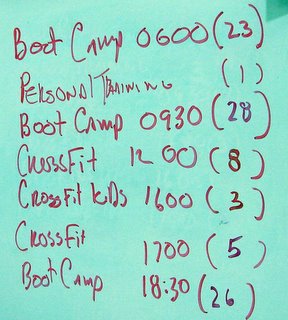 Boot Camp 0600 (23)
Personal Training (1)
Boot Camp 0930 (28)
CrossFit 1200 (8)
CrossFit Kids 1600 (3)
CrossFit 1700 (5)
Boot Camp 18:30 (26)